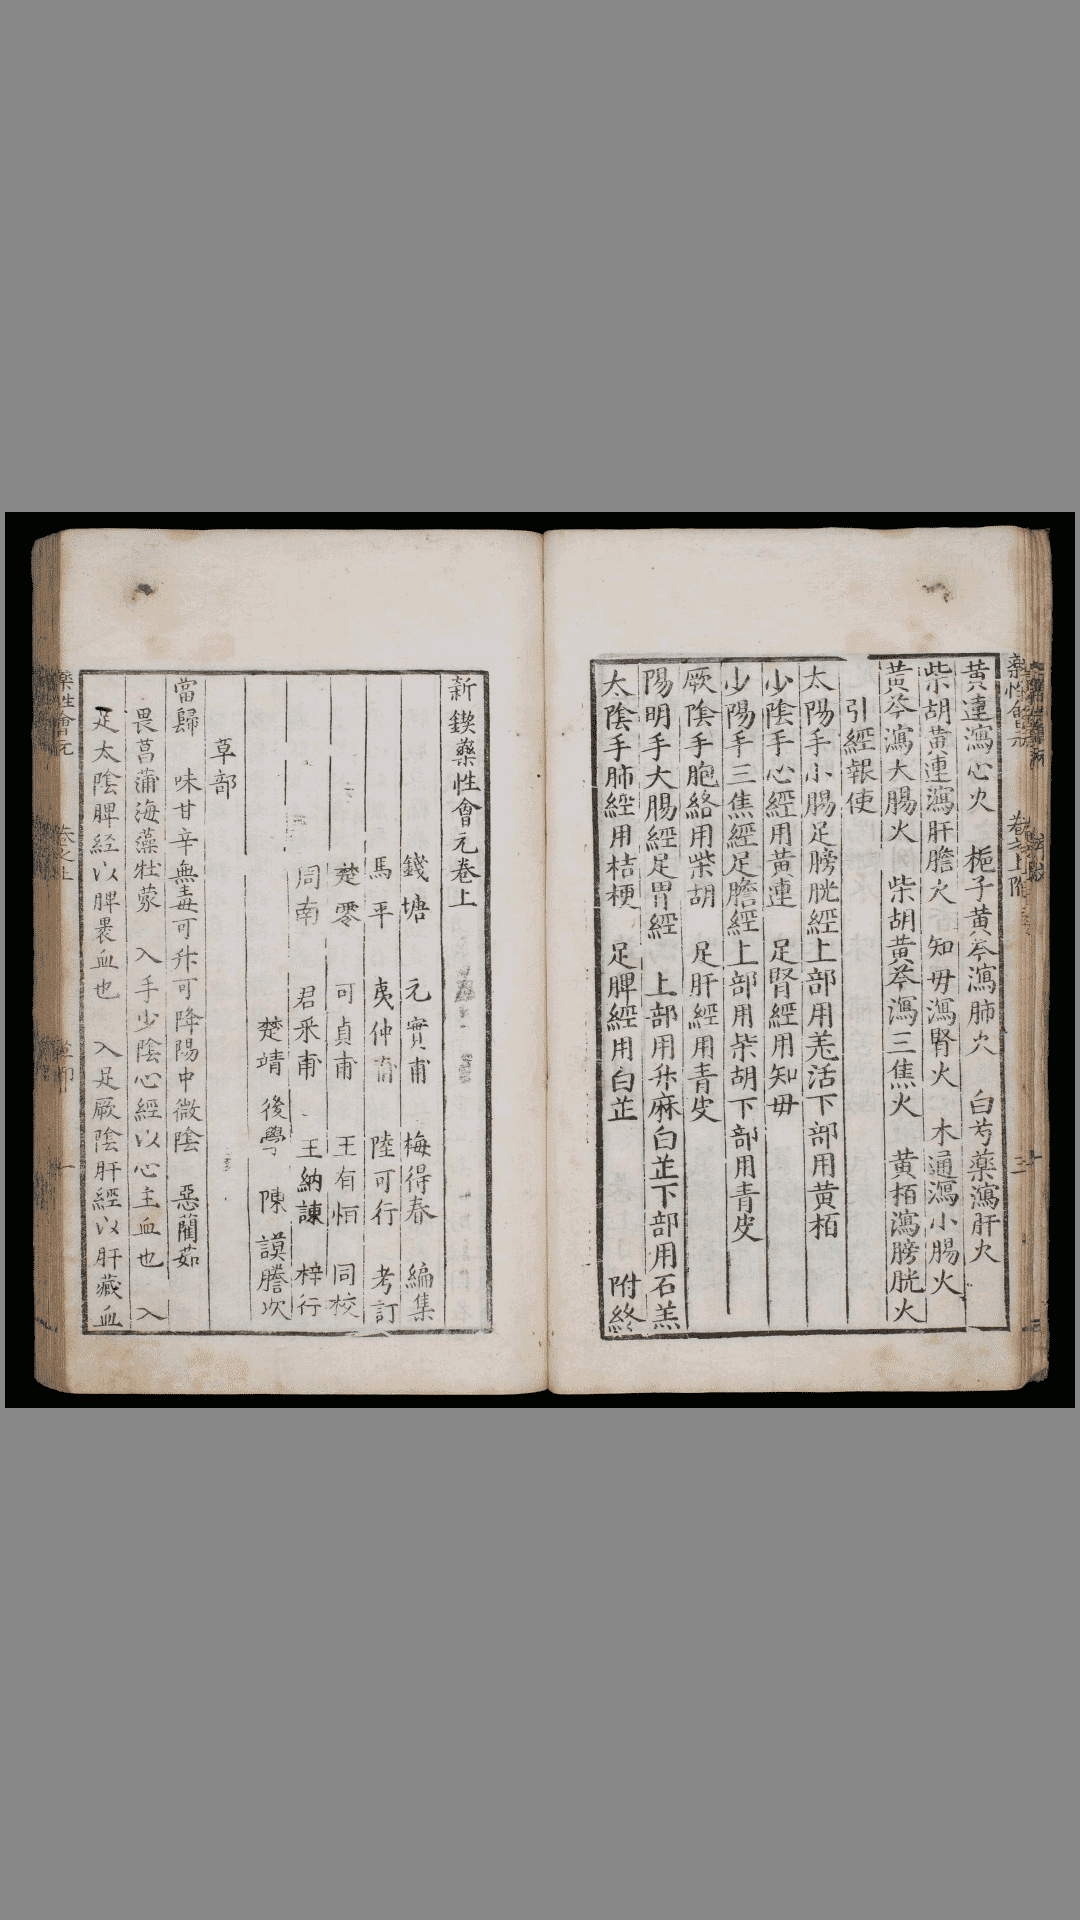 黃連瀉心火 梔子黃芩瀉肺火 白芍藥瀉肝火
柴胡黃連瀉肝膽火 知毋瀉腎火 木通瀉小腸火
黃芩瀉大腸火 柴胡黃芩瀉三焦火 黃栢瀉膀胱火
引經報使
太陽手小腸足膀胱經上部用羗活下部用黃栢
少陰手心經用黃連 足腎經用知毋
少陽手三焦經足膽經上部用柴胡下部用青皮
厥陰手胞絡用柴胡 足肝經用青皮
陽明手大腸經足胃經 上部用升麻白芷下部用石羔
太陰手肺經用桔梗 足脾經用白芷 附終
新鍥藥性會元卷上
錢塘 元實甫 梅得春 編集
馬平 夷仲甫 陸可行 考訂
楚零 可貞甫 王有恒 同校
周南 君采甫 王納諫 梓行
楚靖 後學 陳 謨謄次
草部
當歸 味甘辛無毒可升可降陽中微陰 惡藺茹
畏菖蒲海藻牡蒙 入手少陰心經以心主血也 入
足太陰脾經以脾裹血也 入足厥陰肝經以肝藏血
藥性會元 卷之上 一